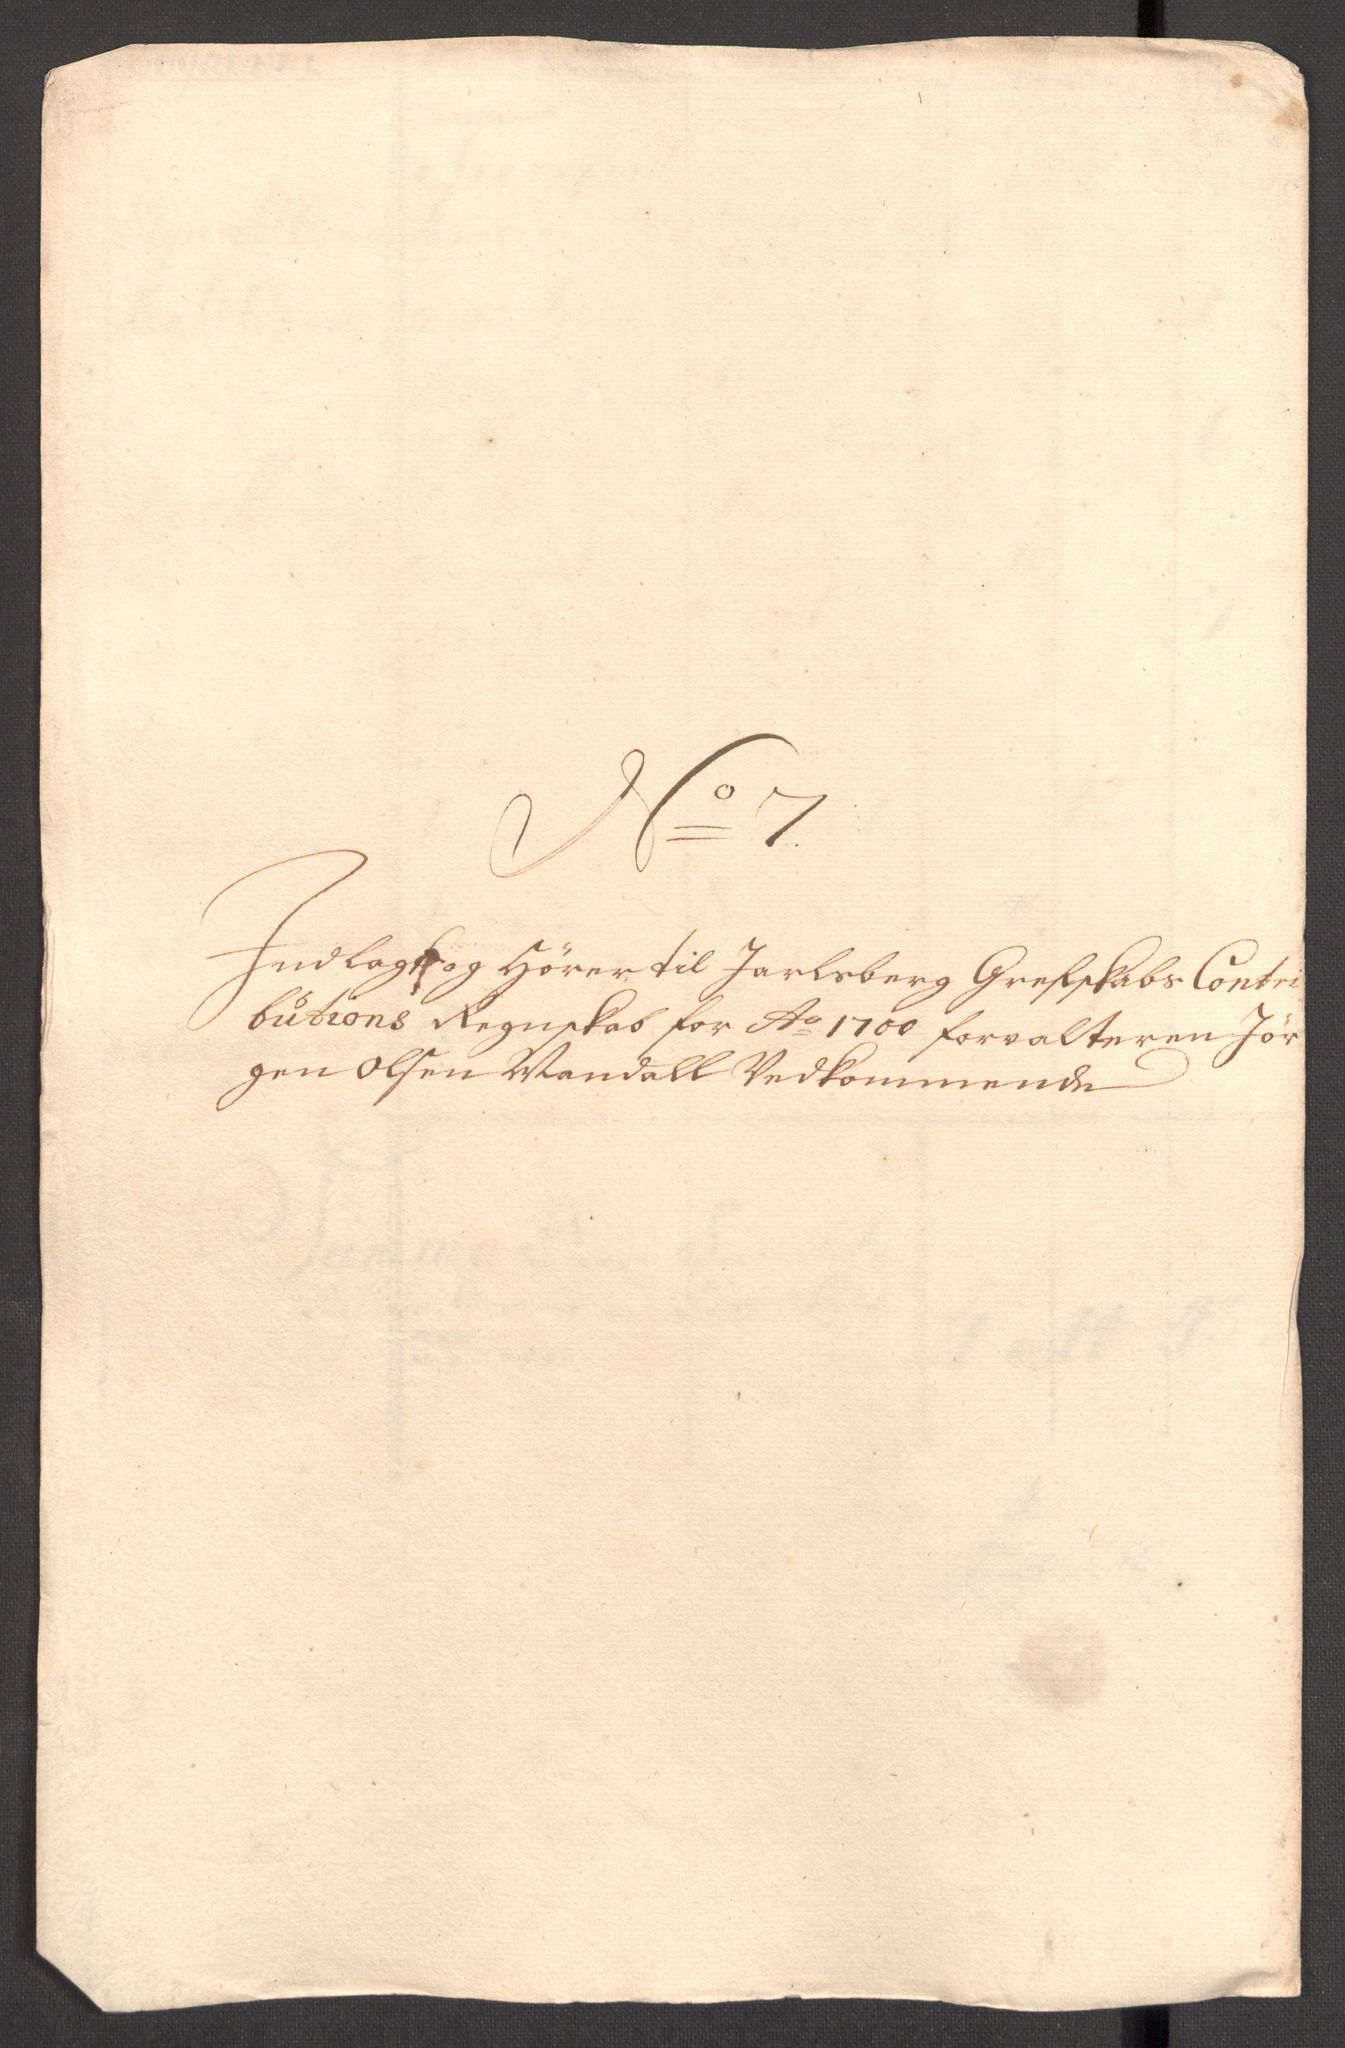 No 7
Indlagt og Hörer til Jarlsberg Grefskabs Contri
butions Regnskab for Ao 1700 forvalteren Jör
gen Olsen Wandall Vedkommende